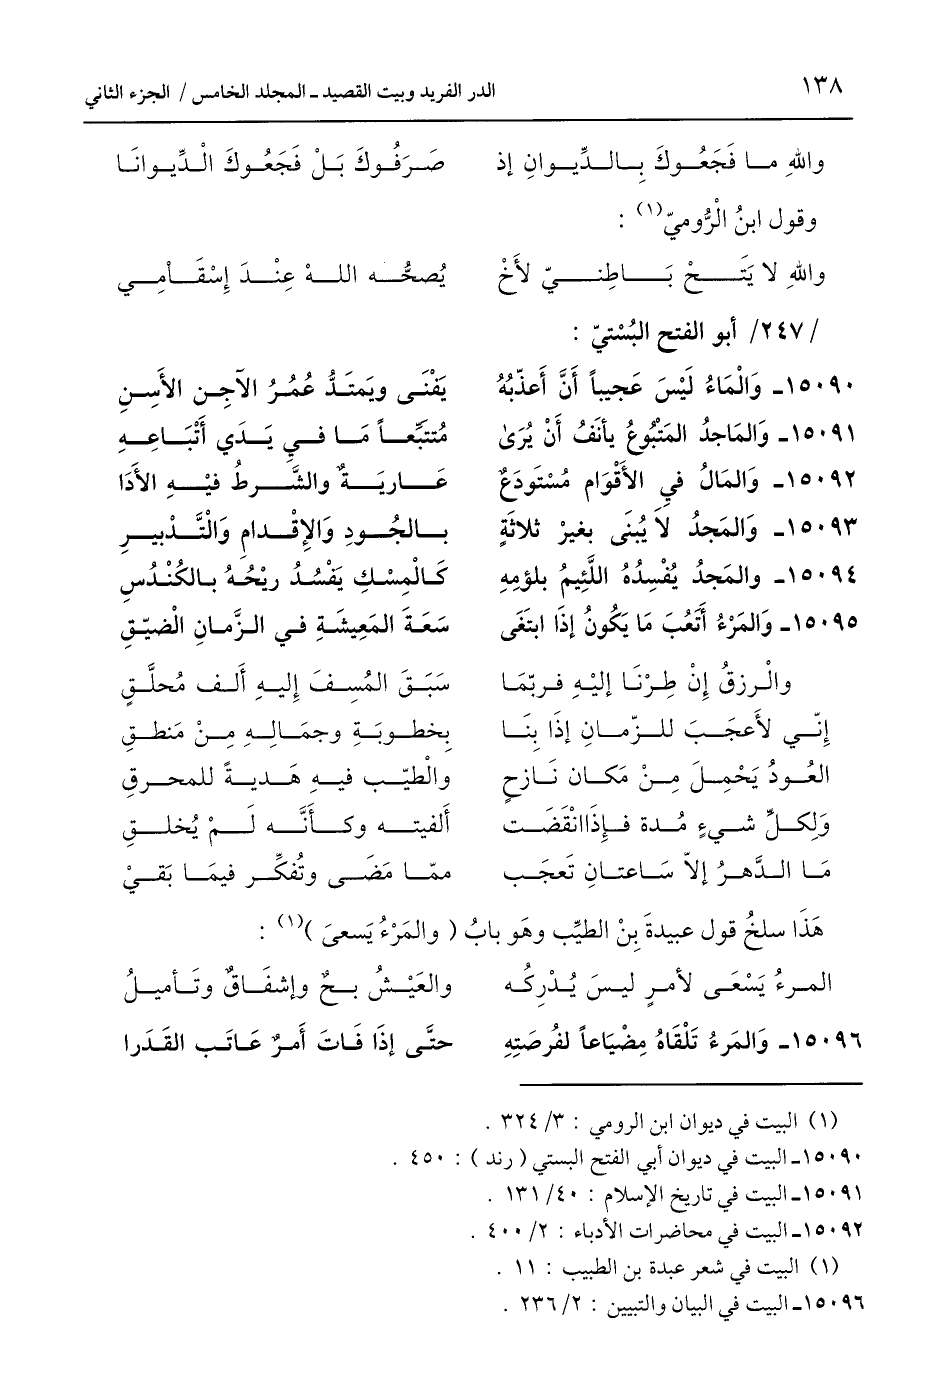 ١٣٨ الدر الفريد وبيت القصيد ـ المجلد الخامس / الجزء الثاني
واللهِ مـا فَجَعُـوكَ بـالـدِّيـوانِ إذ صَـرَفُوكَ بَـلْ فَجَعُـوكَ الْـدِّيـوانَـا
وقول ابنُ الْرُّوميّ(١) :
واللهِ لا يَتَـحْ بَـاطِنـيّ لأَخْ يُصحُّـه اللـهْ عِنْـدَ إسْقَـامِـي
/٢٤٧/ أبو الفتح البُسْتيّ :
١٥٠٩٠ـ وَالْماءُ لَيْسَ عَجيباً أَنَّ أَعذَبُهُ يَفْنَـى ويَمتَـدُّ عُمْـرُ الآجِـنِ الأَسِـنِ
١٥٠٩١ـ وَالمَاجدُ المَتْبُوعُ يأنَفُ أَنْ يُرَىٰ مُتتبِّعـاً مَـا فـي يَـدَي أَتْبَـاعـهِ
١٥٠٩٢ـ وَالمَالُ في الأَقْوَامِ مُسْتَودَعٌ عَـاريَـةٌ والشَّـرطُ فيْـهِ الأَدَا
١٥٠٩٣ـ وَالمَجدُ لاَ يُبْنَى بغيرْ ثلاثَةٍ بـالجُـودِ وَالإقْـدامِ وَالْتَّـدْبيـرِ
١٥٠٩٤ـ والمَجدُ يُفْسِدُهُ اللَّئِيمُ بلؤمِهِ كَـالْمِسْـكِ يَفْسُـدُ ريْحُـهُ بـالكُنْدُسِ
١٥٠٩٥ـ وَالمَرْءُ أَتْعَبَ مَا يَكُونُ إذَا ابتَغَى سَعَـةَ المَعِيشَـةِ فـي الـزَّمانِ الضْيّـقِ
والْـرزقُ إنْ طِـرْنَـا إليْـهِ فـربّمَـا سَبَـقَ المُسِـفَّ إليـهِ ألـف مُحلَّـقِ
إنّـي لأَعجَـبُ للـزّمـانِ إذَا بنَـا بخطـوبَـةٍ وجمَـالـهِ مِـنْ مَنطـقِ
العُـودُ يَحْمِـلَ مِـنْ مَكـان نَـازحٍ والْطيّـب فيـهِ هَـديـةً للمحـرقِ
وَلِكـلِّ شـيءٍ مُـدة فـإذَاانْقَضَـت ألفيتـه وكـأَنَّـه لَـمْ يُخلـقِ
مَـا الـدَّهـرُ إلاّ سَـاعتـانِ تَعجَـب ممّـا مَضَـى وتُفكِّـر فيمَـا بَقـيْ
هَذَا سلخُ قول عبيدةَ بنْ الطيّب وهَو بابُ ( والمَرْءُ يَسعىَ )(١) :
المـرءُ يَسْعَـى لأمـرٍ ليـسَ يُـدْركُـه والعَيْـشُ بـحٌ وإشفَـاقٌ وتَـأميـلُ
١٥٠٩٦ـ وَالمَرءُ تَلْقَاهُ مِضْيَاعاً لفُرصَتِهِ حتَّـى إذَا فَـاتَ أَمـرٌ عَـاتَـب القَـدَرا
(١) البيت في ديوان ابن الرومي : ٣/ ٣٢٤ .
١٥٠٩٠ـ البيت في ديوان أبي الفتح البستي ( رند ) : ٤٥٠ .
١٥٠٩١ـ البيت في تاريخ الإسلام : ٤٠/ ١٣١ .
١٥٠٩٢ـ البيت في محاضرات الأدباء : ٢/ ٤٠٠ .
(١) البيت في شعر عبدة بن الطبيب : ١١ .
١٥٠٩٦ـ البيت في البيان والتبيين : ٢/ ٢٣٦ .